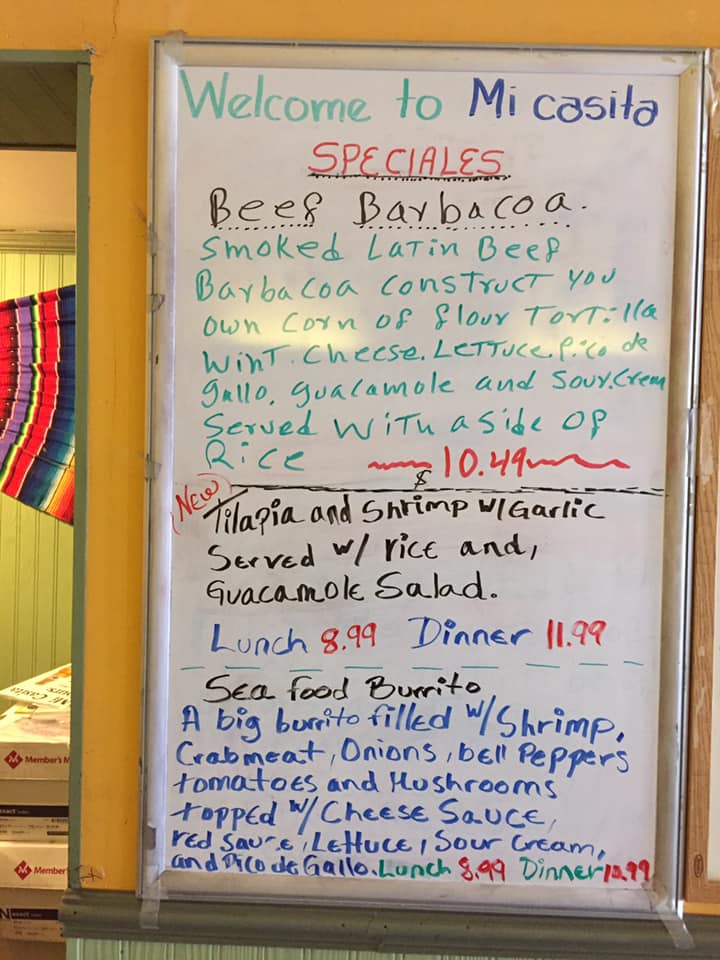 Welcome to Mi casita
SPECIALES
Beef Barbacoa.
Smoked Latin Beef
Barbacoa construct you
own corn of flour Tortilla
wint. cheese. Lettuce. pico de
gallo, guacamole and Sour.Cream
Served with a side of
Rice $ 10.49
NEW
Tilapia and Shrimp w/Garlic
Served w/ rice and,
Guacamole Salad.
Lunch 8.99 Dinner 11.99
Sea food Burrito
A big burrito filled w/Shrimp,
Crabmeat, Onions, bell Peppers
tomatoes and Mushrooms
topped w/Cheese Sauce,
red sauce, Lettuce, Sour Cream,
and Pico de Gallo. Lunch 8.99 Dinner
Mi Casita
Member's M
Member'